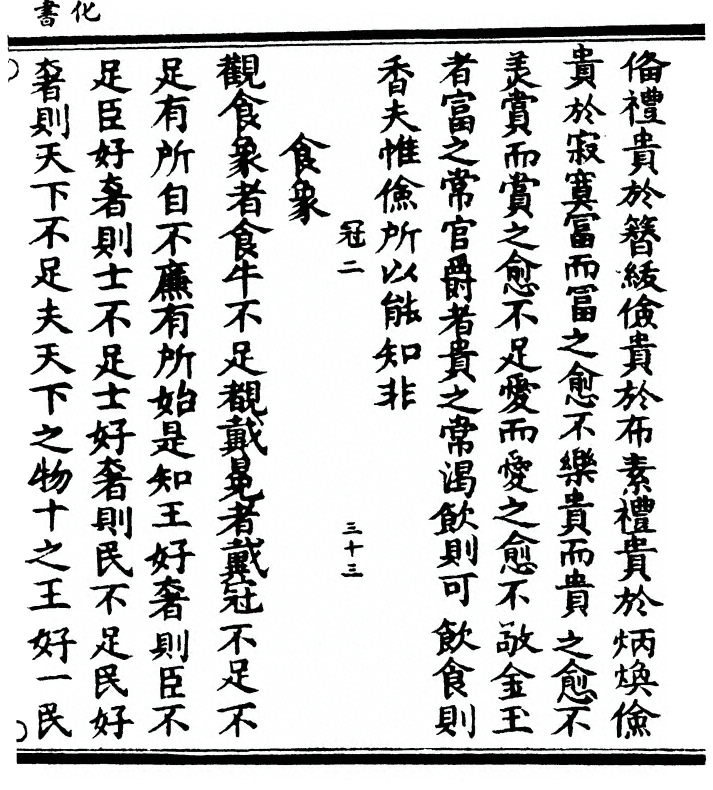 化書
偹禮貴於簪紱儉貴於布素禮貴於炳煥儉
貴於寂寞冨而冨之愈不樂貴而貴之愈不
美賞而賞之愈不足愛而愛之愈不敬金玉
者富之常官爵者貴之常渴飲則可飲食則
香夫惟儉所以能知非
冠二
三十三
食象
觀食象者食牛不足覩戴冕者戴冠不足不
足有所自不廉有所始是知王好奢則臣不
足臣好奢則士不足士好奢則民不足民好
奢則天下不足夫天下之物十之王好一民